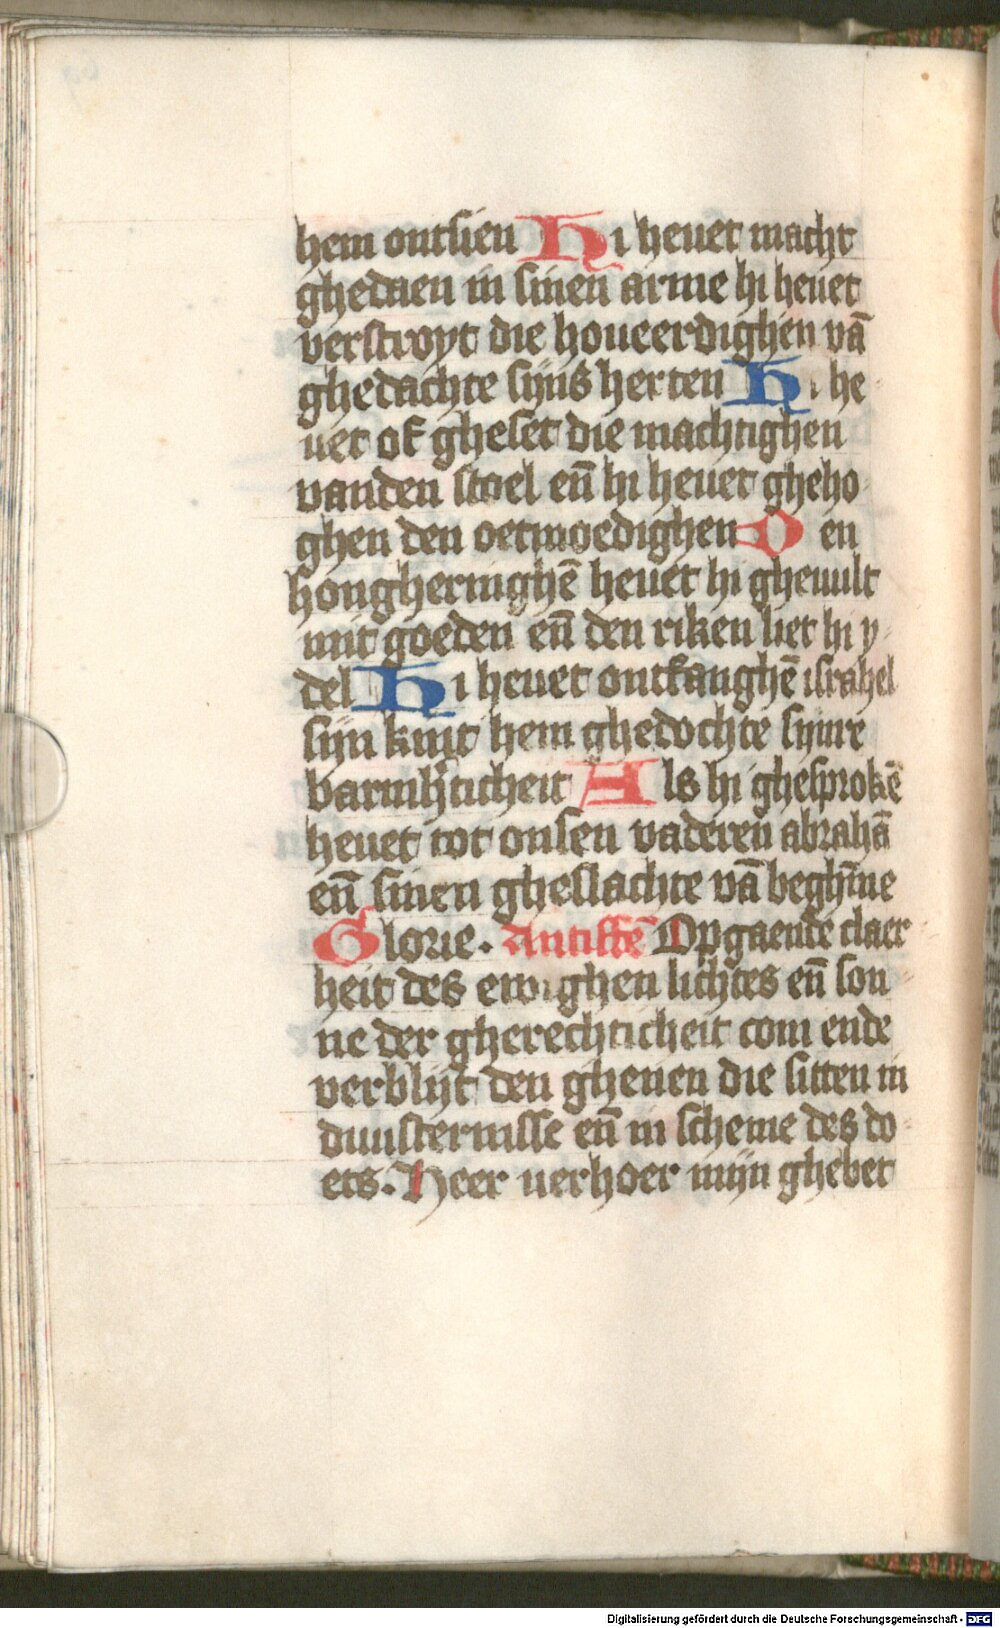 hem ontsien Hi heuet macht
ghedaen in sinen arme hi heuet
verstroyt die houeerdighen vā
ghedachte sijns herten Hi he-
uet of gheset die machtighen
vanden stoel eñ hi heuet gheho-
ghen den oetmoedighen D en
hongherighē heuet hi gheuult
mit goeden eñ den riken liet hi y-
del Hi heuet ontfanghē israhel
sijn kint hem ghedochte sijnre
barmh'ticheit Als hi ghesprokē
heuet tot onsen vaderen abrahā
eñ sinen gheslachte vā beghīne
Glorie. Antiffē Opgaende claer-
heit des ewighen lichtes eñ son-
ne der gherechticheit com ende
verblijt den ghenen die sitten in
duusternisse eñ in scheme des do-
ets. Heer verhoer mijn ghebet
Digitalisierung gefördert durch die Deutsche Forschungsgemeinschaft - DFG